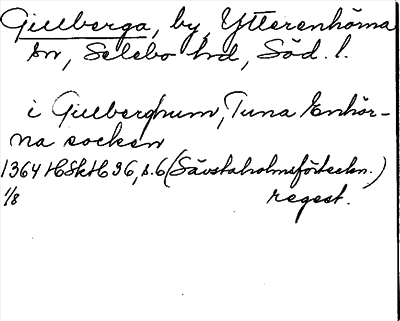 Gillberga, by, Ytterenhörna
sn, Selebo hd, Söd. l.
i Gilberghum, Tuna Enhör-
na socken
1364 HSkH 36, s.6 (Sävstaholmsförteckn.)
1/8 regest.